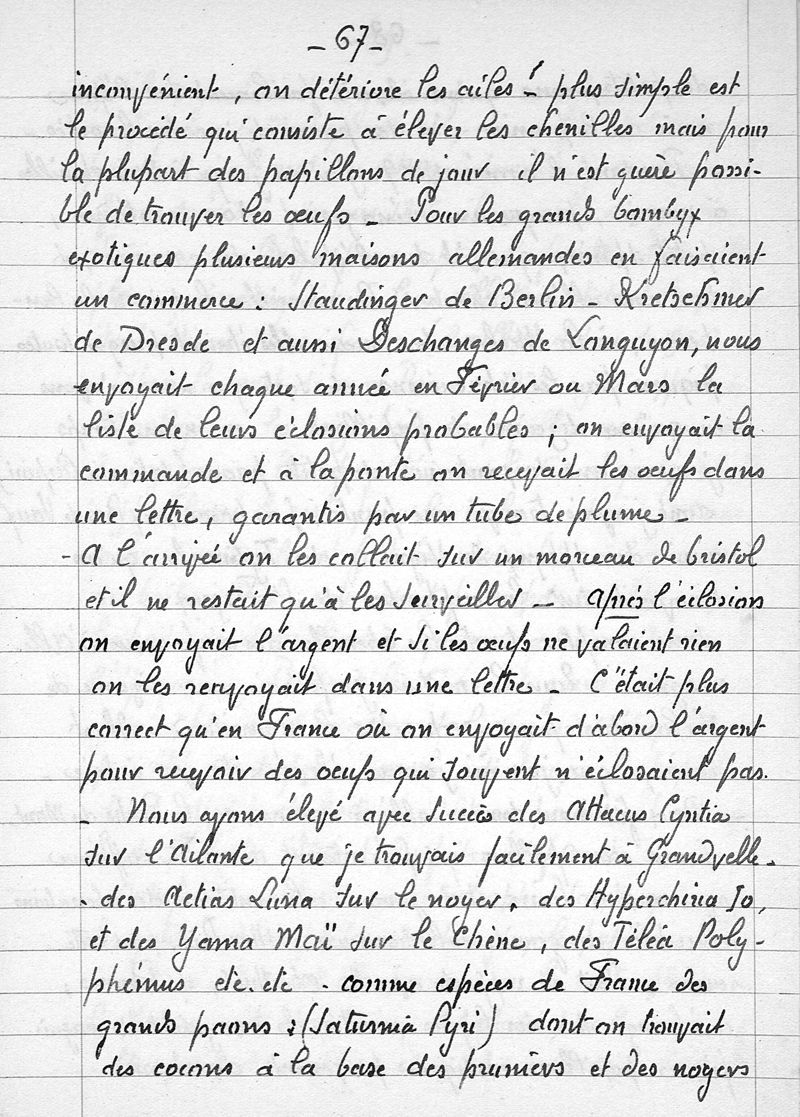 - 67 -
inconvénient, on détériore les ailes ! - plus simple est
le procédé qui consiste à élever les chenilles mais pour
la plupart des papillons de jour il n'est guère possi-
ble de trouver les œufs - Pour les grands bombyx
exotiques plusieurs maisons allemandes en faisaient
un commerce : Staudinger de Berlin - Kretschmer
de Dresde et aussi Deschanges de Longuyon, nous
envoyait chaque année en Février ou Mars la
liste de leurs éclosions probables ; on envoyait la
commande et à la ponte on recevait les œufs dans
une lettre, garantis par un tube de plume -
- A l'arrivée on les collait sur un morceau de bristol
et il ne restait qu'à les surveiller - après l'éclosion
on envoyait l'argent et si les œufs ne valaient rien
on les renvoyait dans une lettre - C'était plus
correct qu'en France où on envoyait d'abord l'argent
pour recevoir des oeufs qui souvent n'éclosaient pas.
- Nous avons élevé avec succès des Attacus Cyntia
sur l'Ailante que je trouvais facilement à Grandvelle.
. des Actias Luna sur le noyer, des Hyperchiria Io,
et des Yama Maï sur le Chêne, des Téléa Poly-
phémus etc. etc. comme espèces de France des
grands paons : (Saturnia Pyri) dont on trouvait
des cocons à la base des pruniers et des noyers